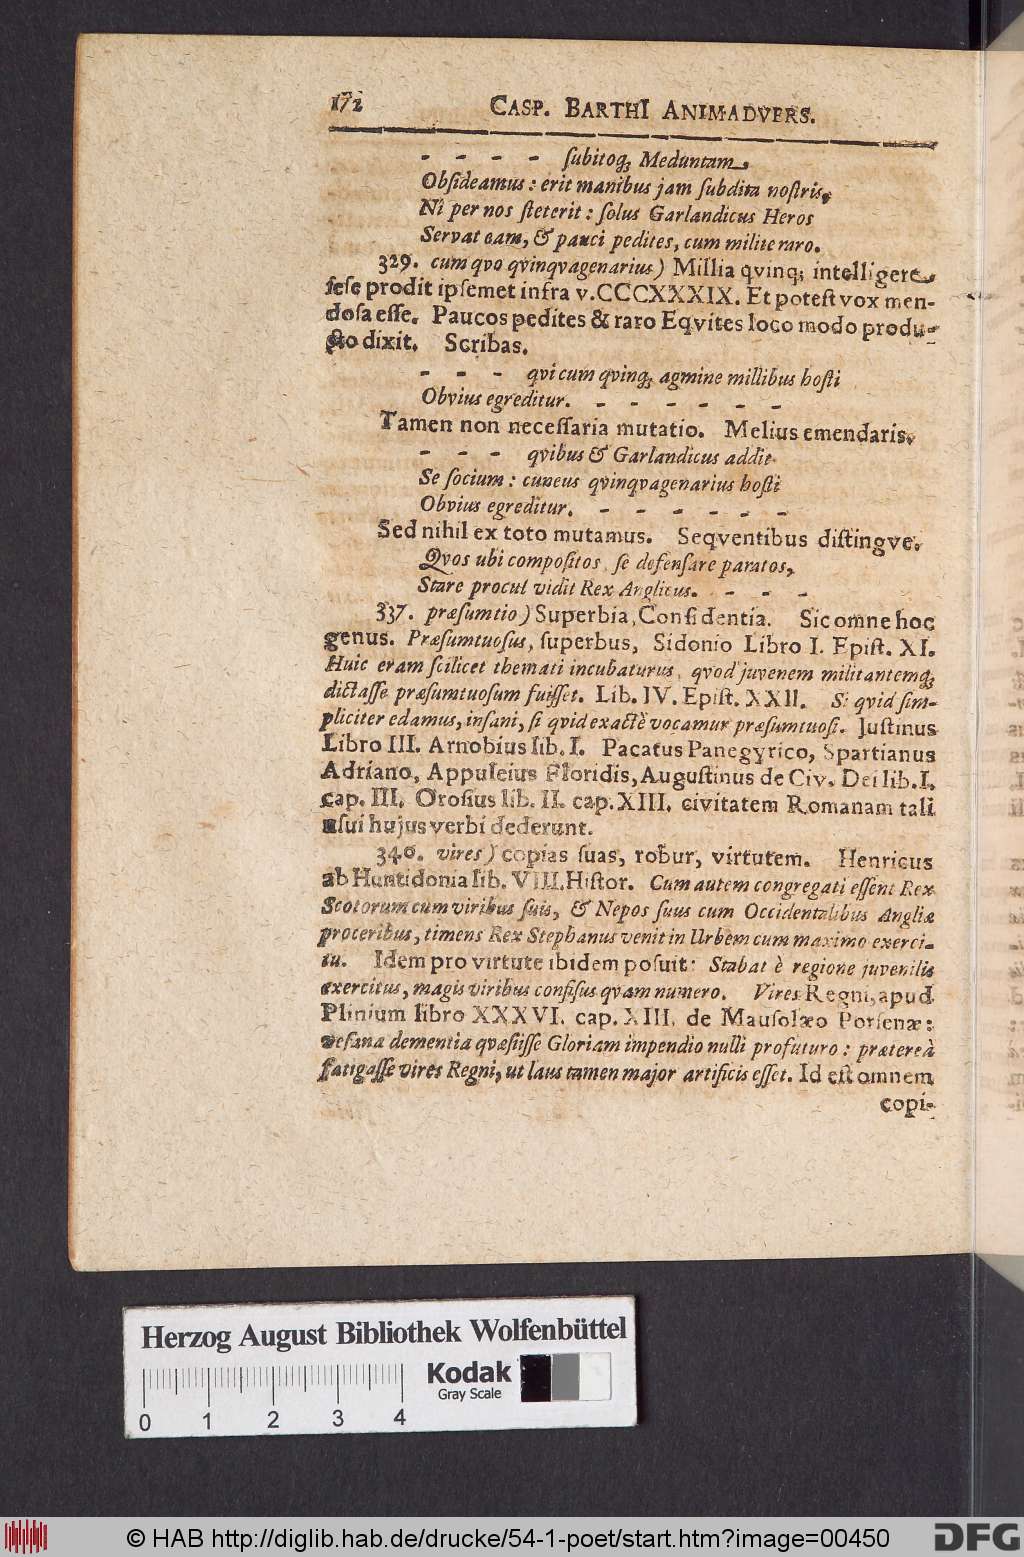 172 CASP. BARTHI ANIMADVERS.
- - - - ſubitoq; Meduntam,
Obſideamus : erit manibus jam ſubdita noſtris,
Ni per nos ſteterit : ſolus Garlandicus Heros
Servat eam, & pauci pedites, cum milite raro.
329. cum quo qvinqvagenarius) Millia qvinq; intelligere
ſeſe prodit ipſemet infra v. CCCXXXIX. Et poteſt vox men-
doſa eſſe. Paucos pedites & raro Eqvites loco modo produ-
cto dixit. Scribas.
- - - qvi cum qvinq; agmine millibus hoſti
Obvius egreditur. - - - - - -
Tamen non neceſſaria mutatio. Melius emendaris.
- - - qvibus & Garlandicus addit
Se ſocium : cuneus qvinqvagenarius hoſti
Obvius egreditur. - - - - - -
Sed nihil ex toto mutamus. Seqventibus diſtingve.
Qvos ubi compoſitos ſe defenſare paratos,
Stare procul vidit Rex Anglicus. - - -
337. præſumtio) Superbia, Confidentia. Sic omne hoc
genus. Præſumtuoſus, ſuperbus, Sidonio Libro I. Epiſt. XI.
Huic eram ſcilicet themati incubaturus, qvod juvenem militantemq;
dictaſſe præſumtuoſum fuiſſet. Lib. IV. Epiſt. XXII. Si qvid ſim-
pliciter edamus, inſani, ſi qvid exactè vocamur præſumtuoſi. Juſtinus
Libro III. Arnobius lib. I. Pacatus Panegyrico, Spartianus
Adriano, Appuleius Floridis, Auguſtinus de Civ. Dei lib. I.
cap. III. Oroſius lib. II. cap. XIII. civitatem Romanam tali
uſui hujus verbi dederunt.
340. vires) copias ſuas, robur, virtutem. Henricus
ab Huntidonia lib. VIII. Hiſtor. Cum autem congregati eſſent Rex
Scotorum cum viribus ſuis, & Nepos ſuus cum Occidentalibus Angliæ
proceribus, timens Rex Stephanus venit in Urbem cum maximo exerci-
tu. Idem pro virtute ibidem poſuit: Stabat è regione juvenilis
exercitus, magis viribus confiſus qvam numero. Vires Regni, apud
Plinium libro XXXVI. cap. XIII. de Mauſolæo Porſenæ:
veſana dementia qvæſiiſſe Gloriam impendio nulli profuturo : præterea
fatigaſſe vires Regni, ut laus tamen major artificis eſſet. Id eſt omnem
copi-
Herzog August Bibliothek Wolfenbüttel
Kodak
Gray Scale
0 1 2 3 4
© HAB http://diglib.hab.de/drucke/54-1-poet/start.htm?image=00450
DFG